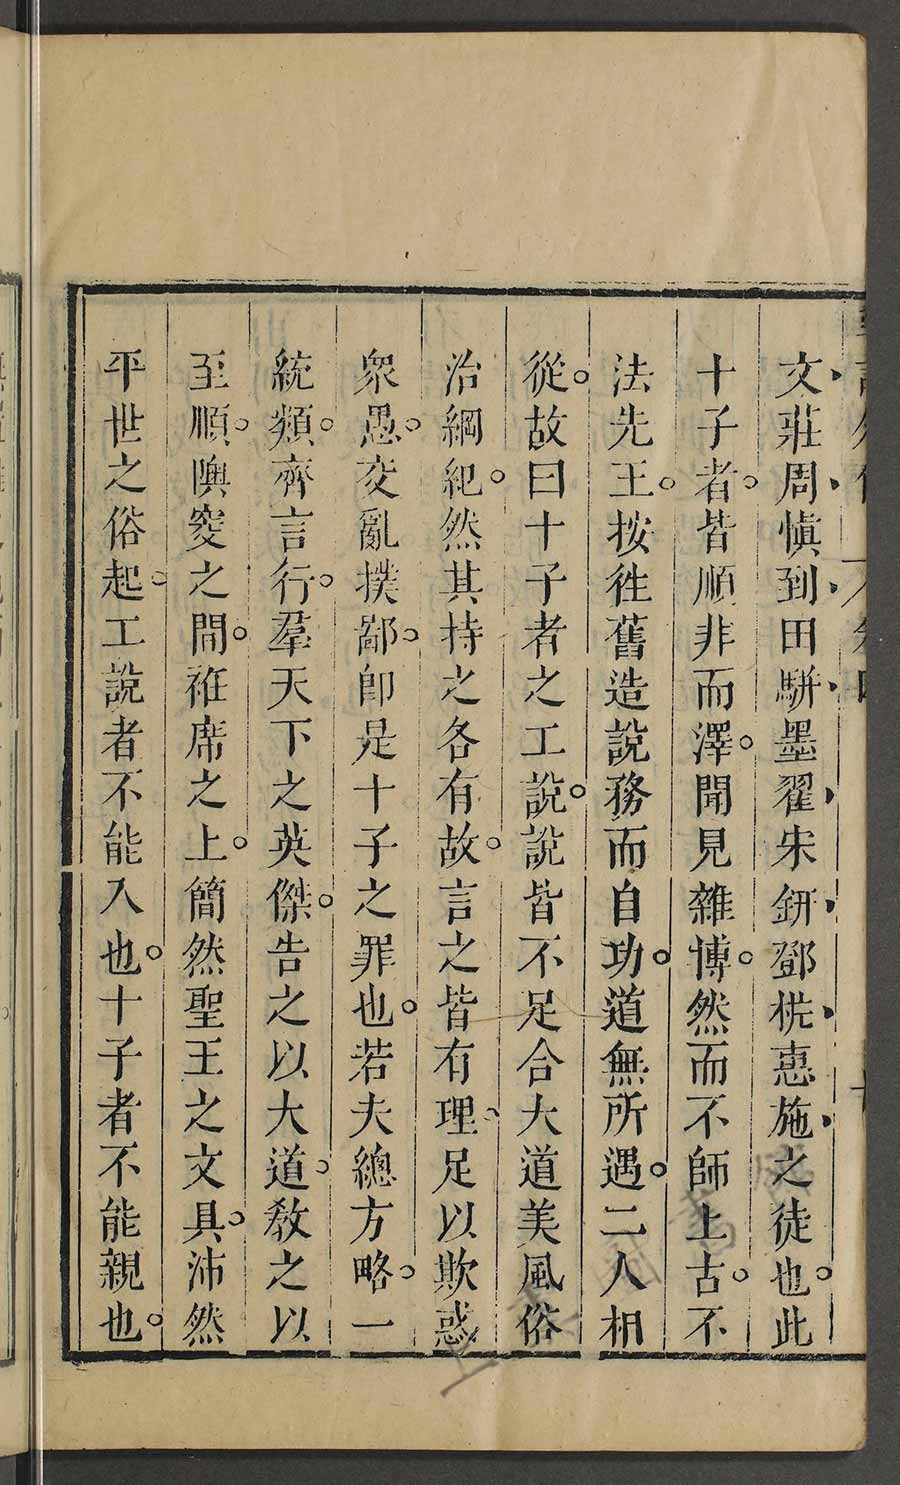 文莊周慎到田駢墨翟宋鈃鄧析惠施之徒也。此
十子者。皆順非而澤。聞見雜博。然而不師上古。不
法先王。按徃舊造說務而自功。道無所遇。二人相
從。故曰十子者之工說。說皆不足合大道美風俗
治綱紀。然其持之各有故。言之皆有理、足以欺惑
衆愚。交亂樸鄙。卽是十子之罪也。若夫總方略。一
統類。齊言行。羣天下之英傑。告之以大道、敎之以
至順。隩窔之閒。袵席之上。簡然聖王之文具。沛然
平世之俗起。工說者不能入也。十子者不能親也。